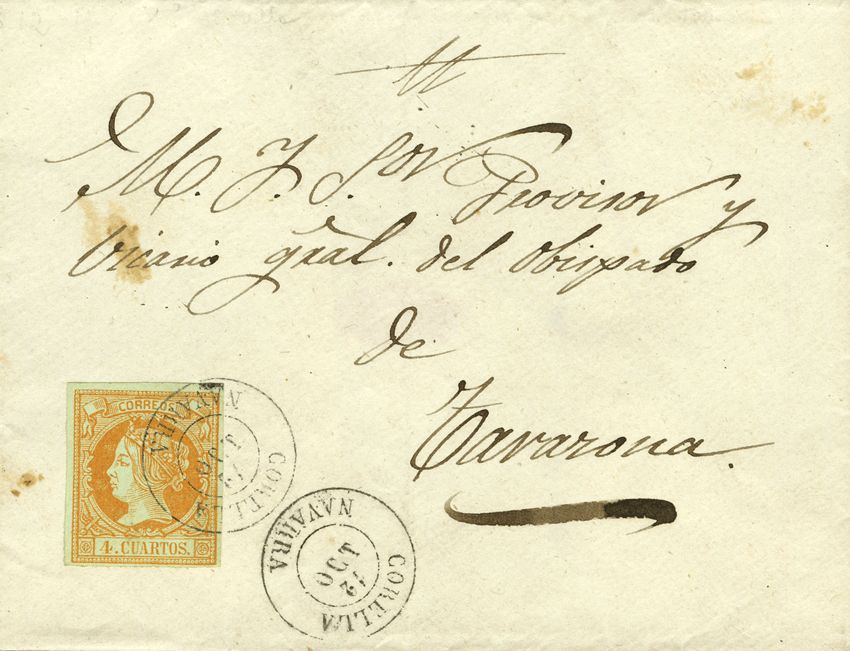 M. J. S.or Provisor y
Vicario gral. del obispado
de
Tarazona.
CORREOS
4. CUARTOS.
NAVARRA
OCT
CORELLA
NAVARRA
OCT
CORELLA